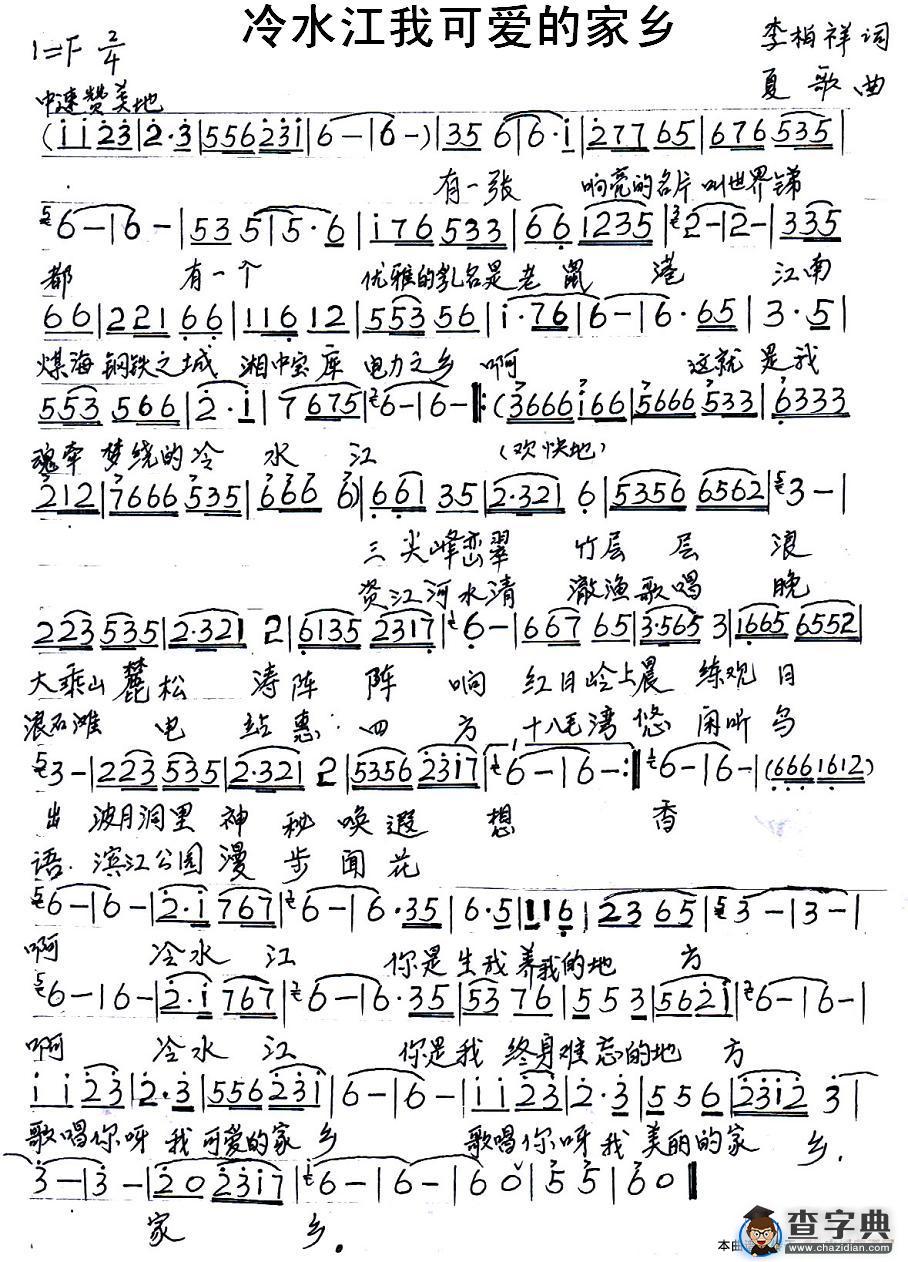 冷水江我可爱的家乡
1=F 2/4
李柏祥 词
夏歌 曲
中速赞美地
(i i 2 3|2·3|556231|6—|6—)|35 6|6·i|277 65|676 535|
有一张 响亮的名片 叫世界锑
6—|6—|535 5|5·6|i76 533|66 i235|2—|2—|335|
都 有一个 优雅的乳名是老鼠港 江南
66|221 66|116 12|553 56|i·76|6—|6·65|3·5|
煤海 钢铁之城 湘中宝库 电力之乡 啊 这就是我
553 566|2·i|7 675|6—|6—:(3666 i66|5666 533|6333
魂牵梦绕的冷水江 (欢快地)
212|7666 535|666 6)|661 35|2·321 6|5356 6562|3—|
三尖峰峦翠 竹层层浪
资江河水清 澈渔歌唱晚
223 535|2·321 2|6135 2317|6—|667 65|3·565 3|1665 6552|
大乘山麓松涛阵阵响 红日岭上晨练观日
浪石滩电站惠四方 十八毛湾悠闲听鸟
3—|223 535|2·321 2|5356 2317|6—|6—:|6—|6—|(666 1612)
出 波月洞里神秘唤遐想 香
语.滨江公园漫步闻花
6—|6—|2·i 767|6—|6·35|6·5|116|223 65|3—|3—|
啊 冷水江 你是生我养我的地方
6—|6—|2·i 767|6—|6·35|53 76|553|562i|6—|6—|
啊 冷水江 你是我终身难忘的地方
i i 23|2·3|556 23i|6—|6—|i i 23|2·3|556|23i2 3|
歌唱你呀我可爱的家乡 歌唱你呀我美丽的家乡.
3—|3—|20 23i7|6—|6—|60|55|60‖
家乡.
本曲
查字典
www.chazidian.com